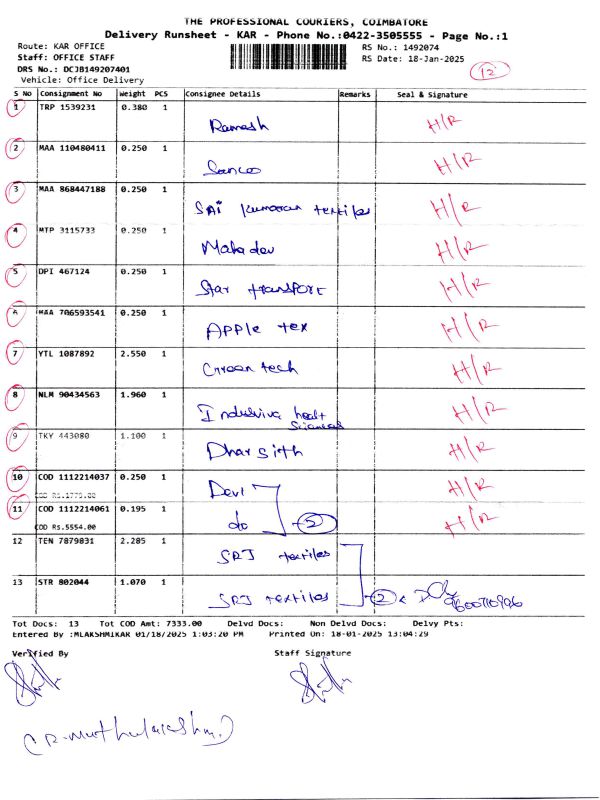 THE PROFESSIONAL COURIERS, COIMBATORE
Delivery Runsheet - KAR - Phone No.:0422-3505555 - Page No.:1
Route: KAR OFFICE RS No.: 1492074
Staff: OFFICE STAFF RS Date: 18-Jan-2025
DRS No.: DCJB149207401 12
Vehicle: Office Delivery
S No Consignment No Weight PCS Consignee Details Remarks Seal & Signature
1 TRP 1539231 0.380 1 Ramesh H/R
2 MAA 110480411 0.250 1 H/R
3 MAA 868447188 0.250 1 SAi kumaran textiles H/R
4 MTP 3115733 0.250 1 Mahadev H/R
5 DPI 467124 0.250 1 Star transport H/R
6 MAA 706593541 0.250 1 Apple tex H/R
7 YTL 1087892 2.550 1 Green tech H/R
8 NLM 90434563 1.960 1 H/R
9 TKY 443080 1.100 1 Dharsith H/R
10 COD 1112214037 0.250 1 Devi H/R
COD Rs.1779.00
11 COD 1112214061 0.195 1 do 2 H/R
COD Rs.5554.00
12 TEN 7879831 2.285 1 SRJ textiles
13 STR 802044 1.070 1 SRJ textiles 2
Tot Docs: 13 Tot COD Amt: 7333.00 Delvd Docs: Non Delvd Docs: Delvy Pts:
Entered By :MLAKSHMIKAR 01/18/2025 1:03:20 PM Printed On: 18-01-2025 13:04:29
Verified By Staff Signature
(R. Muthulakshmi)